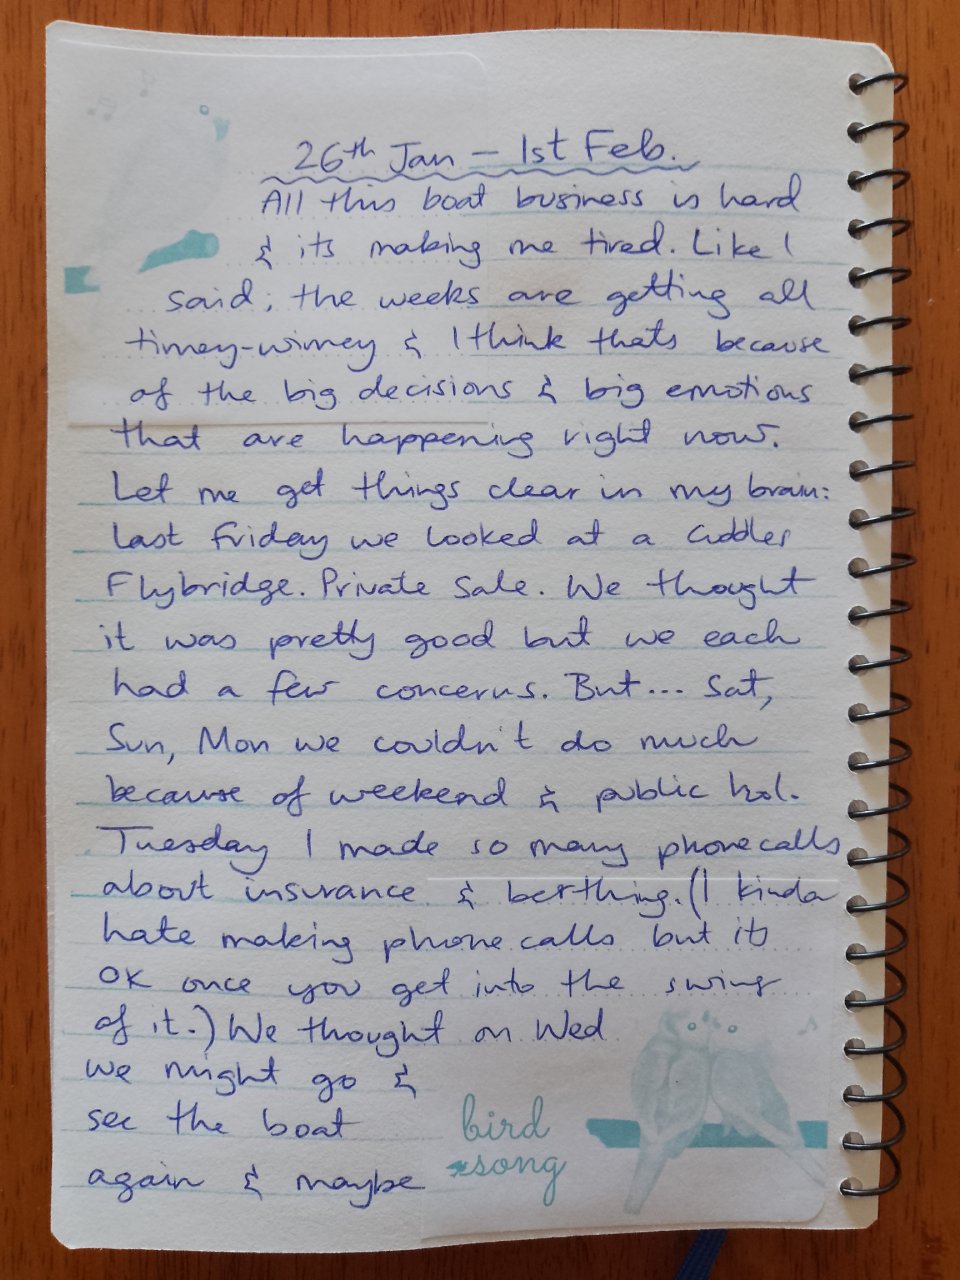 26th Jan – 1st Feb.
All this boat business is hard
& its making me tired. Like I
said, the weeks are getting all
timey-wimey & I think thats because
of the big decisions & big emotions
that are happening right now.
Let me get things clear in my brain:
last Friday we looked at a Cuddles
Flybridge. Private Sale. We thought
it was pretty good but we each
had a few concerns. But... Sat,
Sun, Mon we couldn't do much
because of weekend & public hol.
Tuesday I made so many phonecalls
about insurance & berthing. (I kinda
hate making phone calls but its
OK once you get into the swing
of it.) We thought on Wed
we might go &
see the boat
again & maybe
bird
song